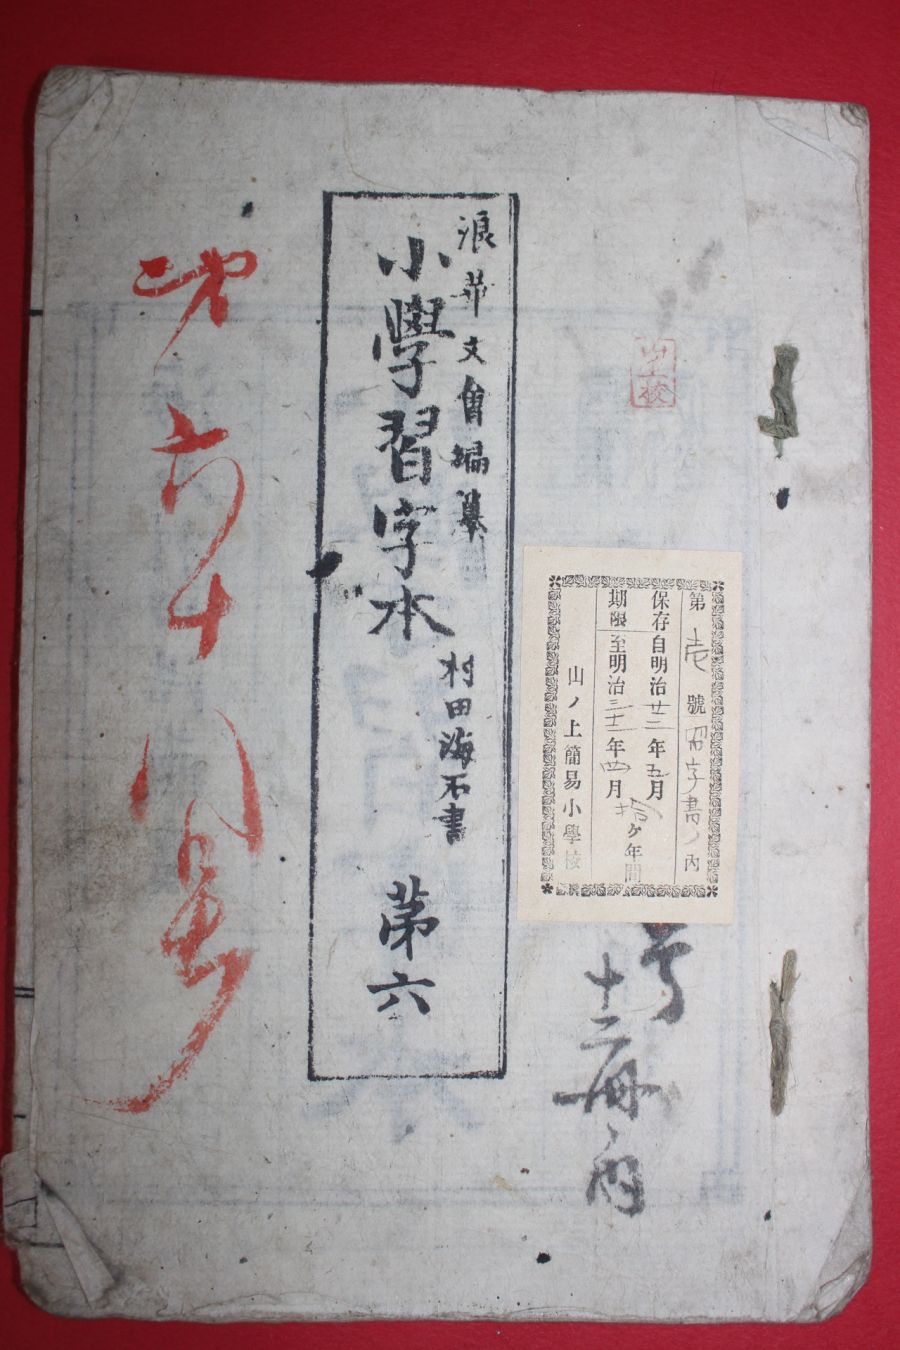 第壱號習字書ノ内
保存自明治廿二年五月
拾ヶ年間
期限至明治三十二年四月
山ノ上簡易小學校
号
十二冊ノ内
浪華文會編纂
小學習字本
村田海石書
第六
六十八号